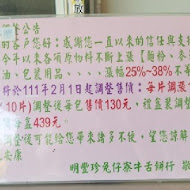 公告
的客戶您好：感謝您一直以來的信任與支
今年以來各項原物料不斷
油、包裝用品....漲幅25%~38%不
將於111年2月1日起調整售價：每片調漲1
10片)調整後每包售價130元，禮盒裝調整
盒439元。
調整後可能給您帶來諸多不便，望您諒解
安康
明豐珍兔仔寮牛舌餅行